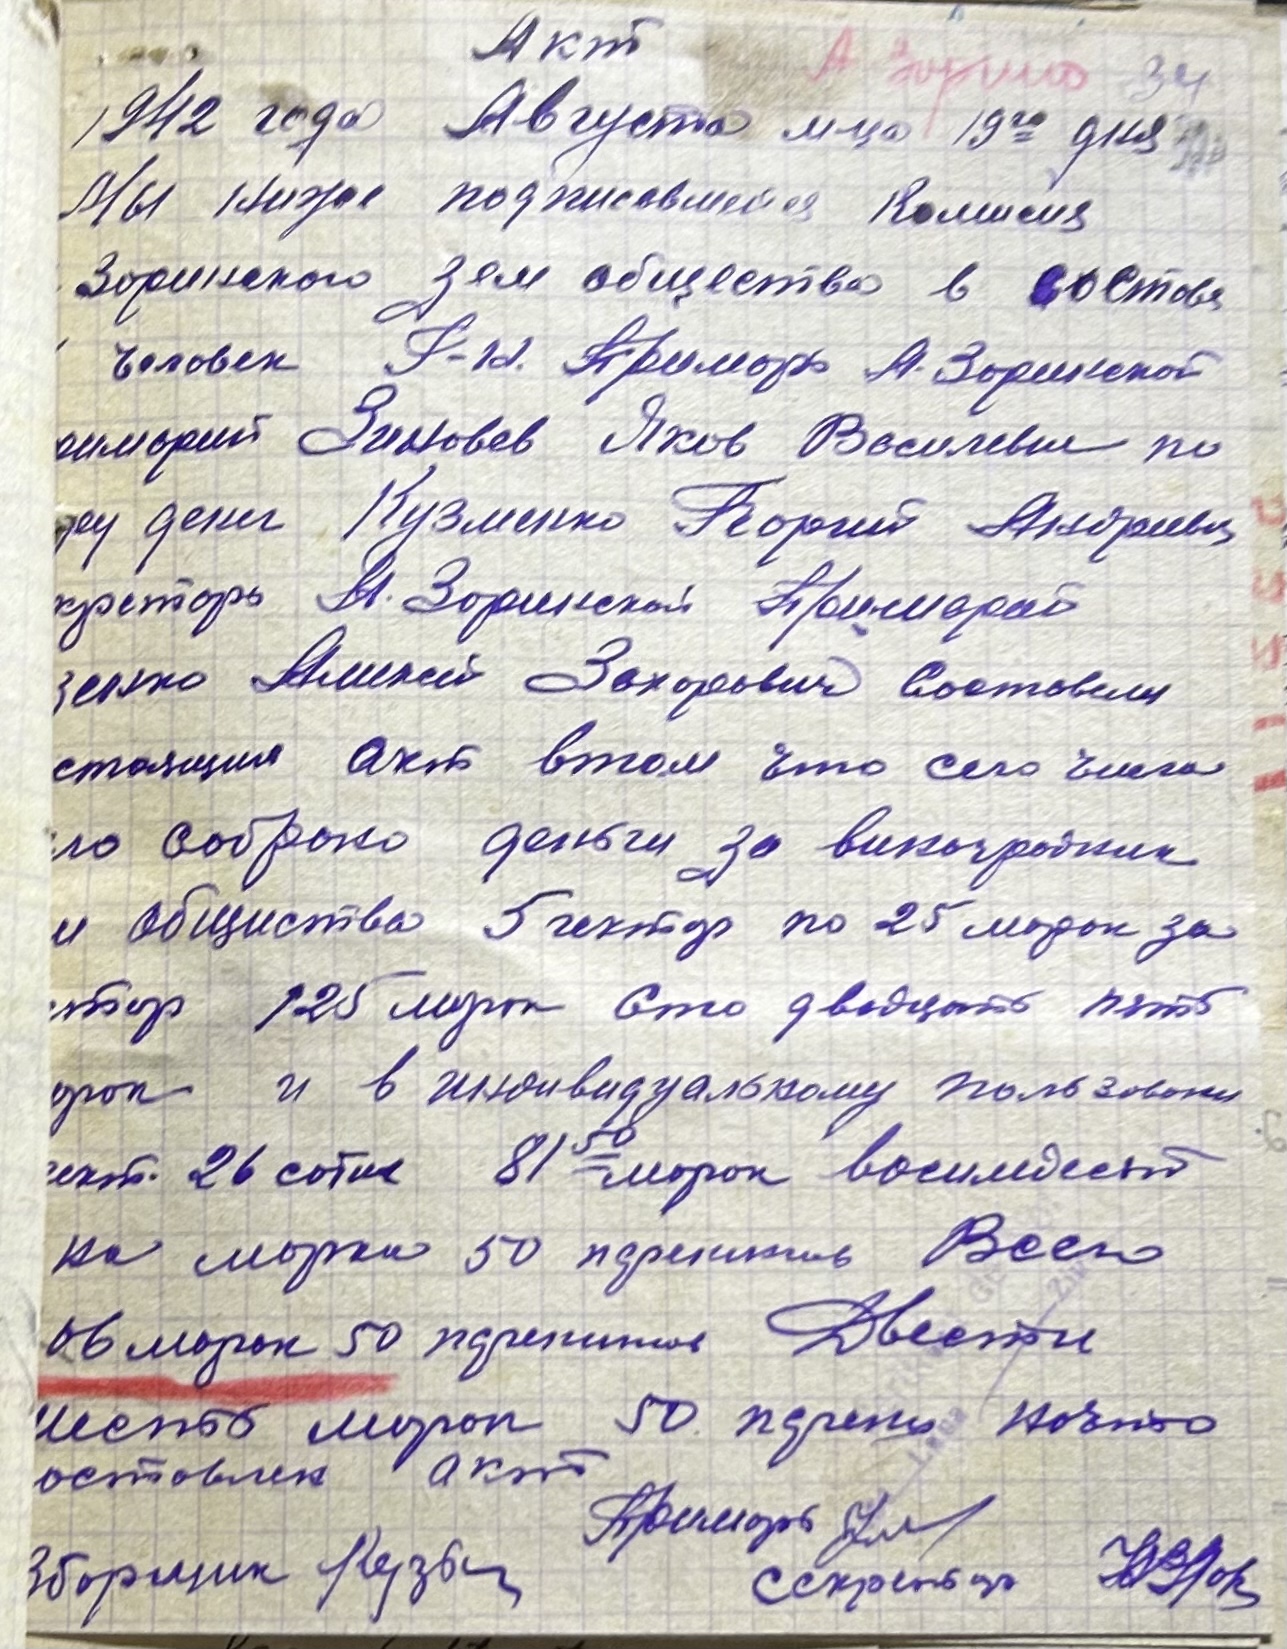 Акт
А Зорино 34
1942 года Августа м-ца 19го дня
Мы ниже подписавшиися Комисия
Зоринского зем общества в составя
человек Г-н. Примарь А. Зоринской
римарии Зиновев Яков Василевич по
денег Кузменко Георгий Андриевич
кретарь А. Зоринской Примарий
зенко Алексей Захорович Составели
стоящия акт втом что сего числа
ло собрано деньги за виноградник
и общиства 5 гектар по 25 марок за
ктар 125 марок Сто двадцать пять
арок и в индивидуальному пользовани
гект. 26 соток 81 50 марок восимдесят
на марка 50 пфенингов Всего
06 марок 50 пфенигов Двести
шесть марок 50 пфени
оставлен акт
Примарь
Зборщик секретар